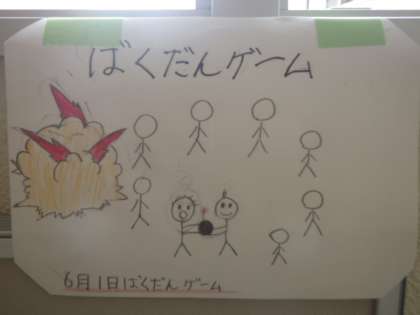 ばくだんゲーム
6月1日ばくだんゲーム